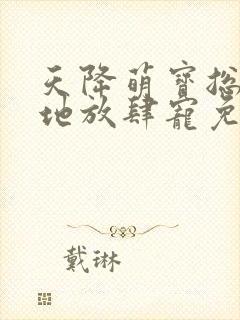 天降萌寶總
地放肆寵免
戴琳